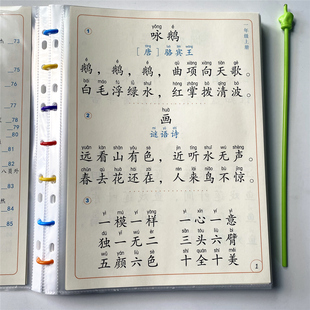 一年级上册
①
yǒng é
咏鹅
[唐] 骆宾王
鹅，鹅，鹅，曲项向天歌。
白毛浮绿水，红掌拨清波。
②
huà
画
谜语诗
yuǎn kàn shān yǒu sè jìn tīng shuǐ wú shēng
远看山有色，近听水无声。
chūn qù huā hái zài rén lái niǎo bù jīng
春去花还在，人来鸟不惊。
③
yì mú yí yàng yì xīn yí yì
一模一样 一心一意
dú yī wú èr sān tóu liù bì
独一无二 三头六臂
wǔ yán liù sè shí quán shí měi
五颜六色 十全十美
1